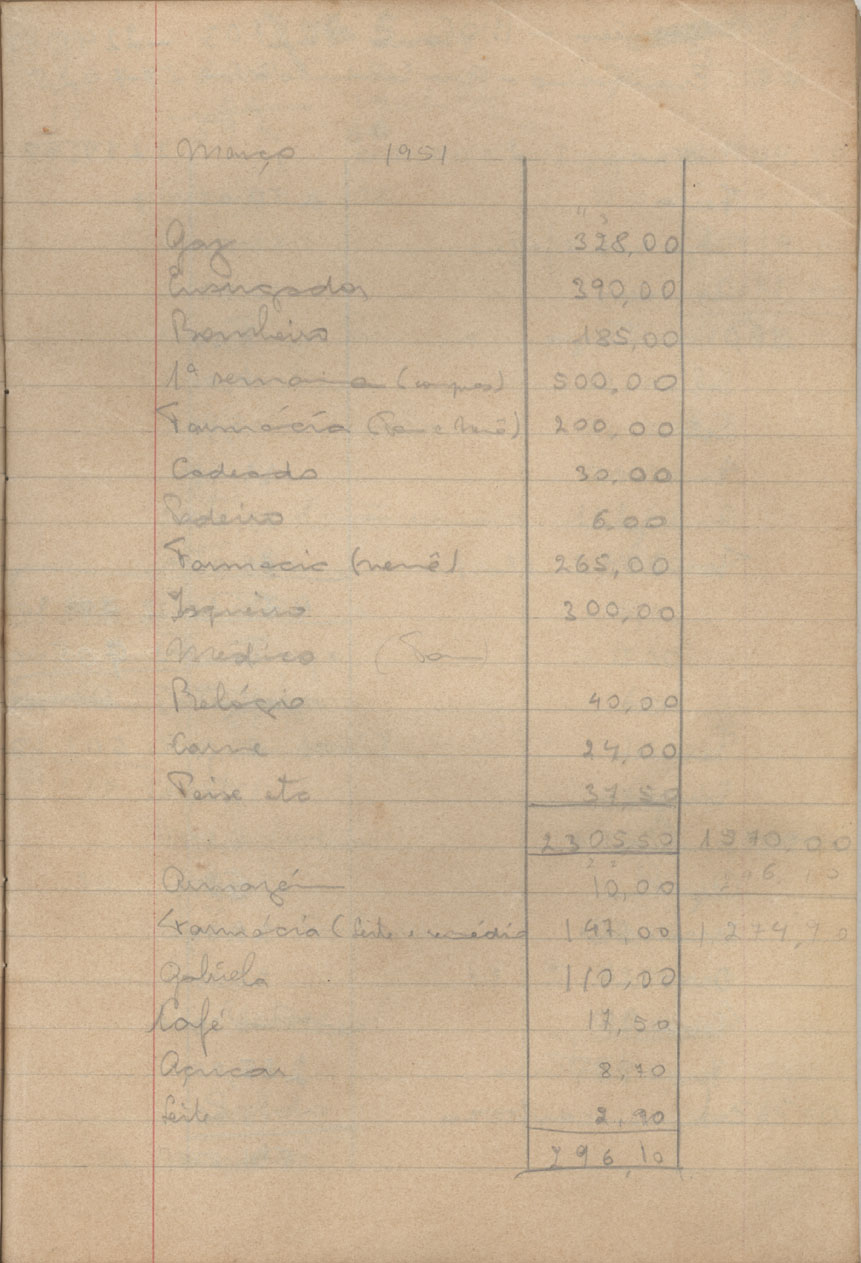 Março 1951
Gaz 328,00
Enxugador 390,00
Bombeiro 185,00
1ª semana (compras) 500,00
Farmácia ( e Nenê) 200,00
Cadeado 30,00
Padeiro 6,00
Farmacia (nenê) 265,00
Isqueiro 300,00
Médico
Relógio 40,00
Carne 24,00
Peixe etc 37,50
2305,50 1570,00
Armazém 10,00
Farmácia (Leite e remédio 147,00 1274,90
Gabriela 110,00
Café 17,50
Açucar 8,70
Leite 2,90
296,10